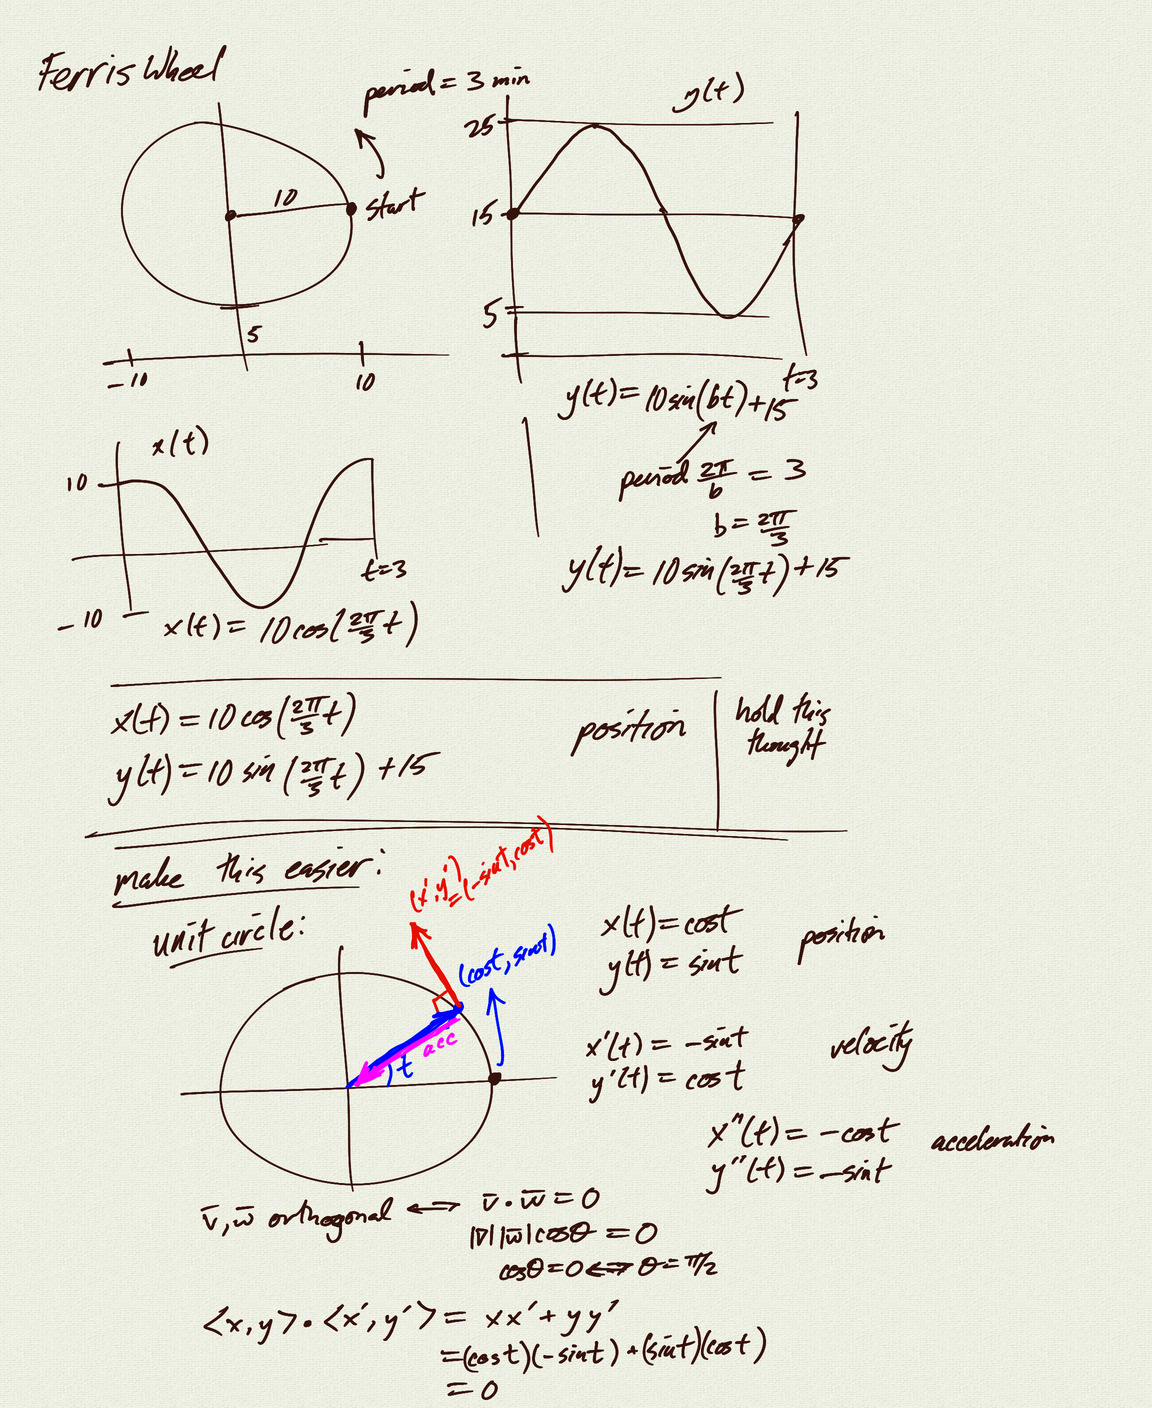 Ferris Wheel
period = 3 min
10
start
5
-10
10
y(t)
25
15
5
t=3
y(t) = 10 sin(bt) + 15
period 2π/b = 3
b = 2π/3
y(t) = 10 sin(2π/3 t) + 15
x(t)
10
-10
t=3
x(t) = 10 cos(2π/3 t)
x(t) = 10 cos(2π/3 t)
y(t) = 10 sin(2π/3 t) + 15
position
hold this
thought
make this easier:
unit circle:
(x',y')
=(-sint, cost)
(cost, sint)
acc
t
x(t) = cost
y(t) = sint
position
x'(t) = -sint
y'(t) = cost
velocity
x"(t) = -cost
y"(t) = -sint
acceleration
v̄, w̄ orthogonal ⟺ v̄ · w̄ = 0
|v̄| |w̄| cosθ = 0
cosθ = 0 ⟺ θ = π/2
<x,y> · <x',y'> = xx' + yy'
=(cost)(-sint) + (sint)(cost)
= 0